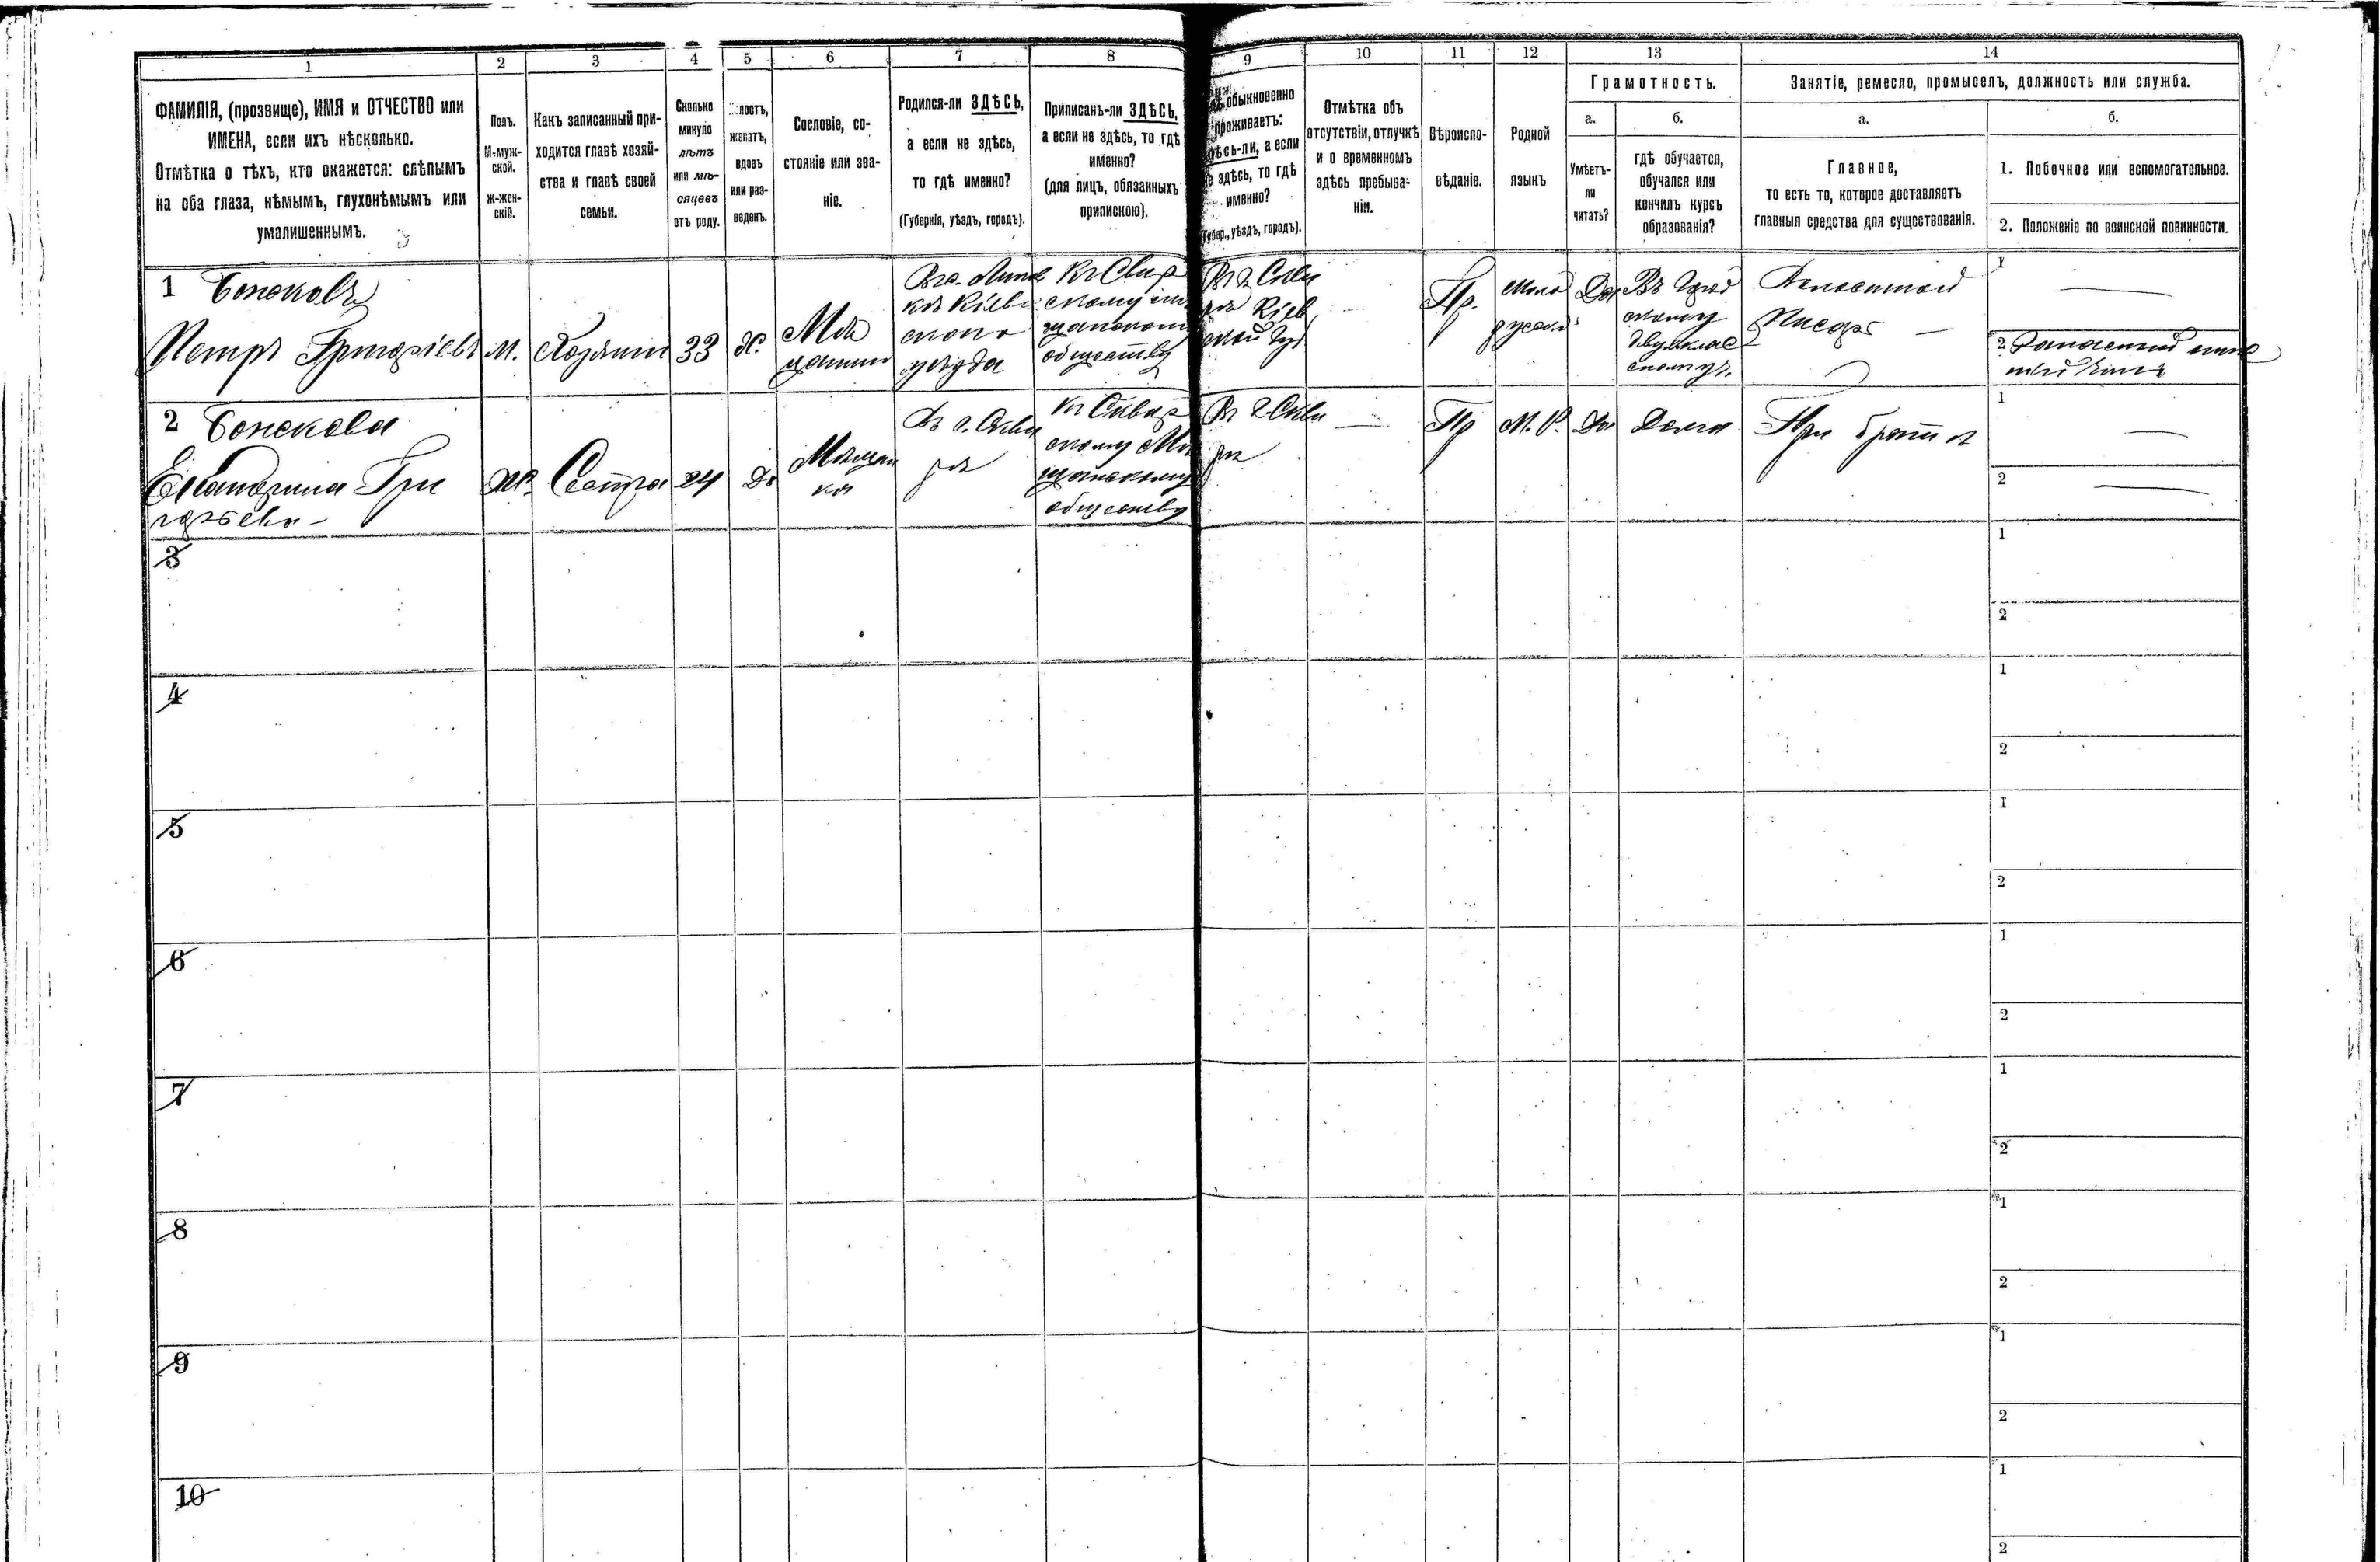 1 2 3 4 5 6 7 8 9 10 11 12 13 14
ФАМИЛІЯ, (прозвище), ИМЯ и ОТЧЕСТВО или
ИМЕНА, если ихъ нѣсколько.
Отмѣтка о тѣхъ, кто окажется: слѣпымъ
на оба глаза, нѣмымъ, глухонѣмымъ или
умалишеннымъ.
Полъ.
М-муж-
ской.
ж-жен-
скій.
Какъ записанный при-
ходится главѣ хозяй-
ства и главѣ своей
семьи.
Сколько
минуло
лѣтъ
или мѣ-
сяцевъ
отъ роду.
лостъ,
женатъ,
вдовъ
или раз-
веденъ.
Сословіе, со-
стояніе или зва-
ніе.
Родился-ли ЗДѢСЬ,
а если не здѣсь,
то гдѣ именно?
(Губернія, уѣздъ, городъ).
Приписанъ-ли ЗДѢСЬ,
а если не здѣсь, то гдѣ
именно?
(для лицъ, обязанныхъ
припискою).
обыкновенно
проживаетъ:
здѣсь-ли, а если
не здѣсь, то гдѣ
именно?
(Губер., уѣздъ, городъ).
Отмѣтка объ
отсутствіи, отлучкѣ
и о временномъ
здѣсь пребыва-
ніи.
Вѣроиспо-
вѣданіе.
Родной
языкъ
Грамотность.
а.
Умѣетъ-
ли
читать?
б.
гдѣ обучается,
обучался или
кончилъ курсъ
образованія?
Занятіе, ремесло, промыселъ, должность или служба.
а.
Главное,
то есть то, которое доставляетъ
главныя средства для существованія.
б.
1. Побочное или вспомогательное.
2. Положеніе по воинской повинности.
1 Божковъ
Петръ Григоріевъ
М.
Хозяинъ
33
Х.
Мѣ
щанинъ
кѣ Кіев
скаго
уѣзда
скому
обществу
Въ г. Скви
рѣ Кіев
ской Губ
Пр.
Мало
русскій
Да
Въ Город
скому
двухклас
скому
Писарь
1
2 Запасный
2 Божкова
Екатерина Гри
горьева
Ж.
Сестра
24
Дѣ
Мѣщан
ка
Въ г. Скви
рѣ
Къ Сквир
скому Мѣ
щанскому
обществу
Въ г. Скви
рѣ
Пр
М. Р.
Да
Дома
При братѣ
1
2
3
1
2
4
1
2
5
1
2
6
1
2
7
1
2
8
1
2
9
1
2
10
1
2